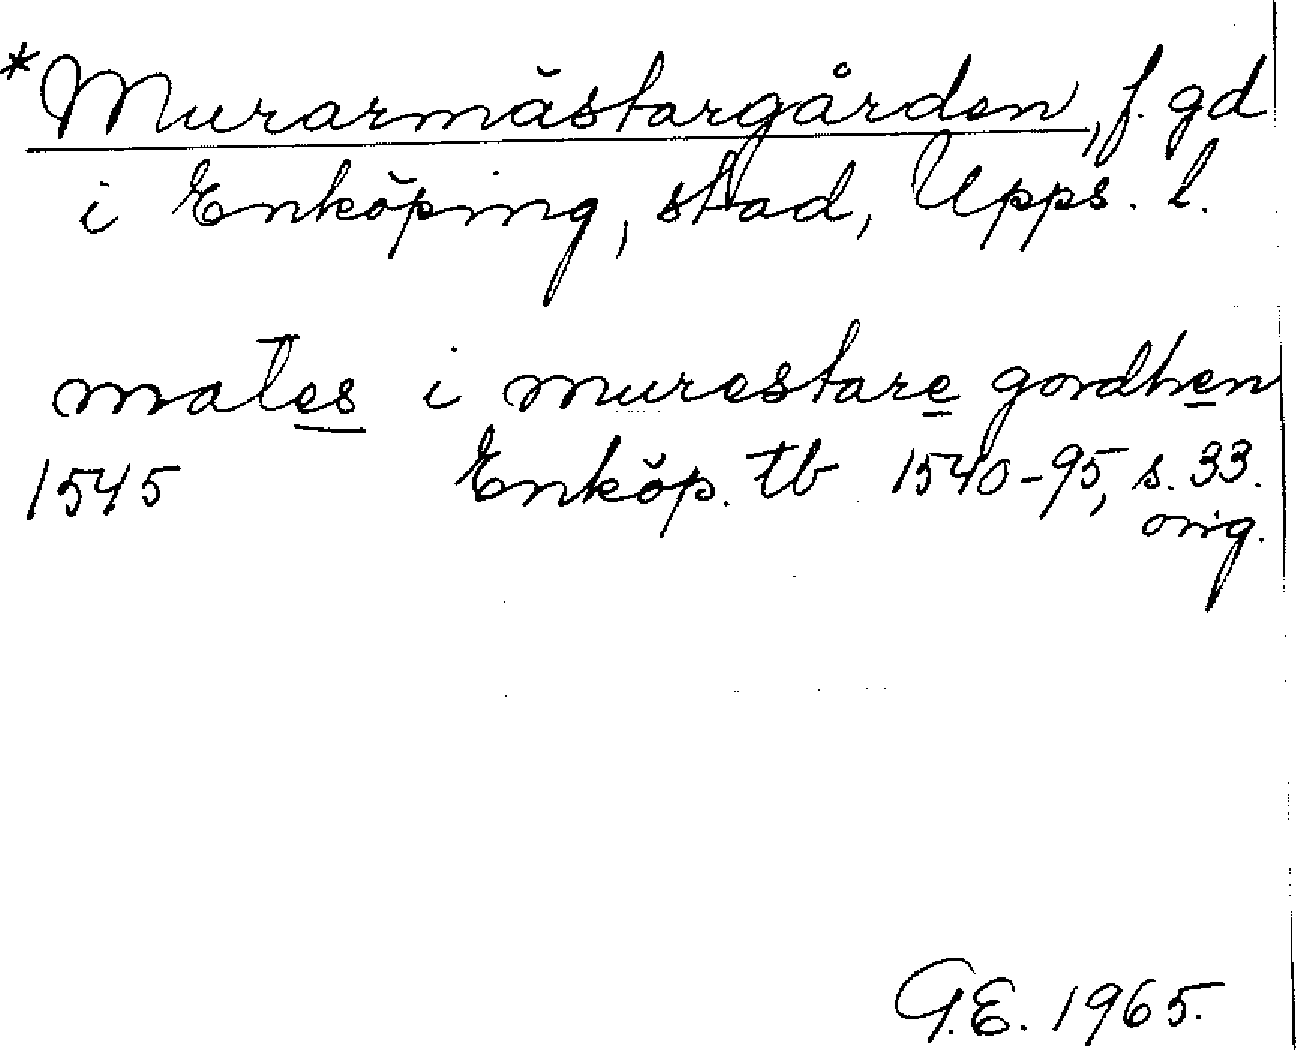 *Murarmästargården, f. gd
i Enköping, stad, Upps. l.
mates i murestare gordhen
1545 Enköp. tb 1540-95, s. 33.
orig.
G.E. 1965.